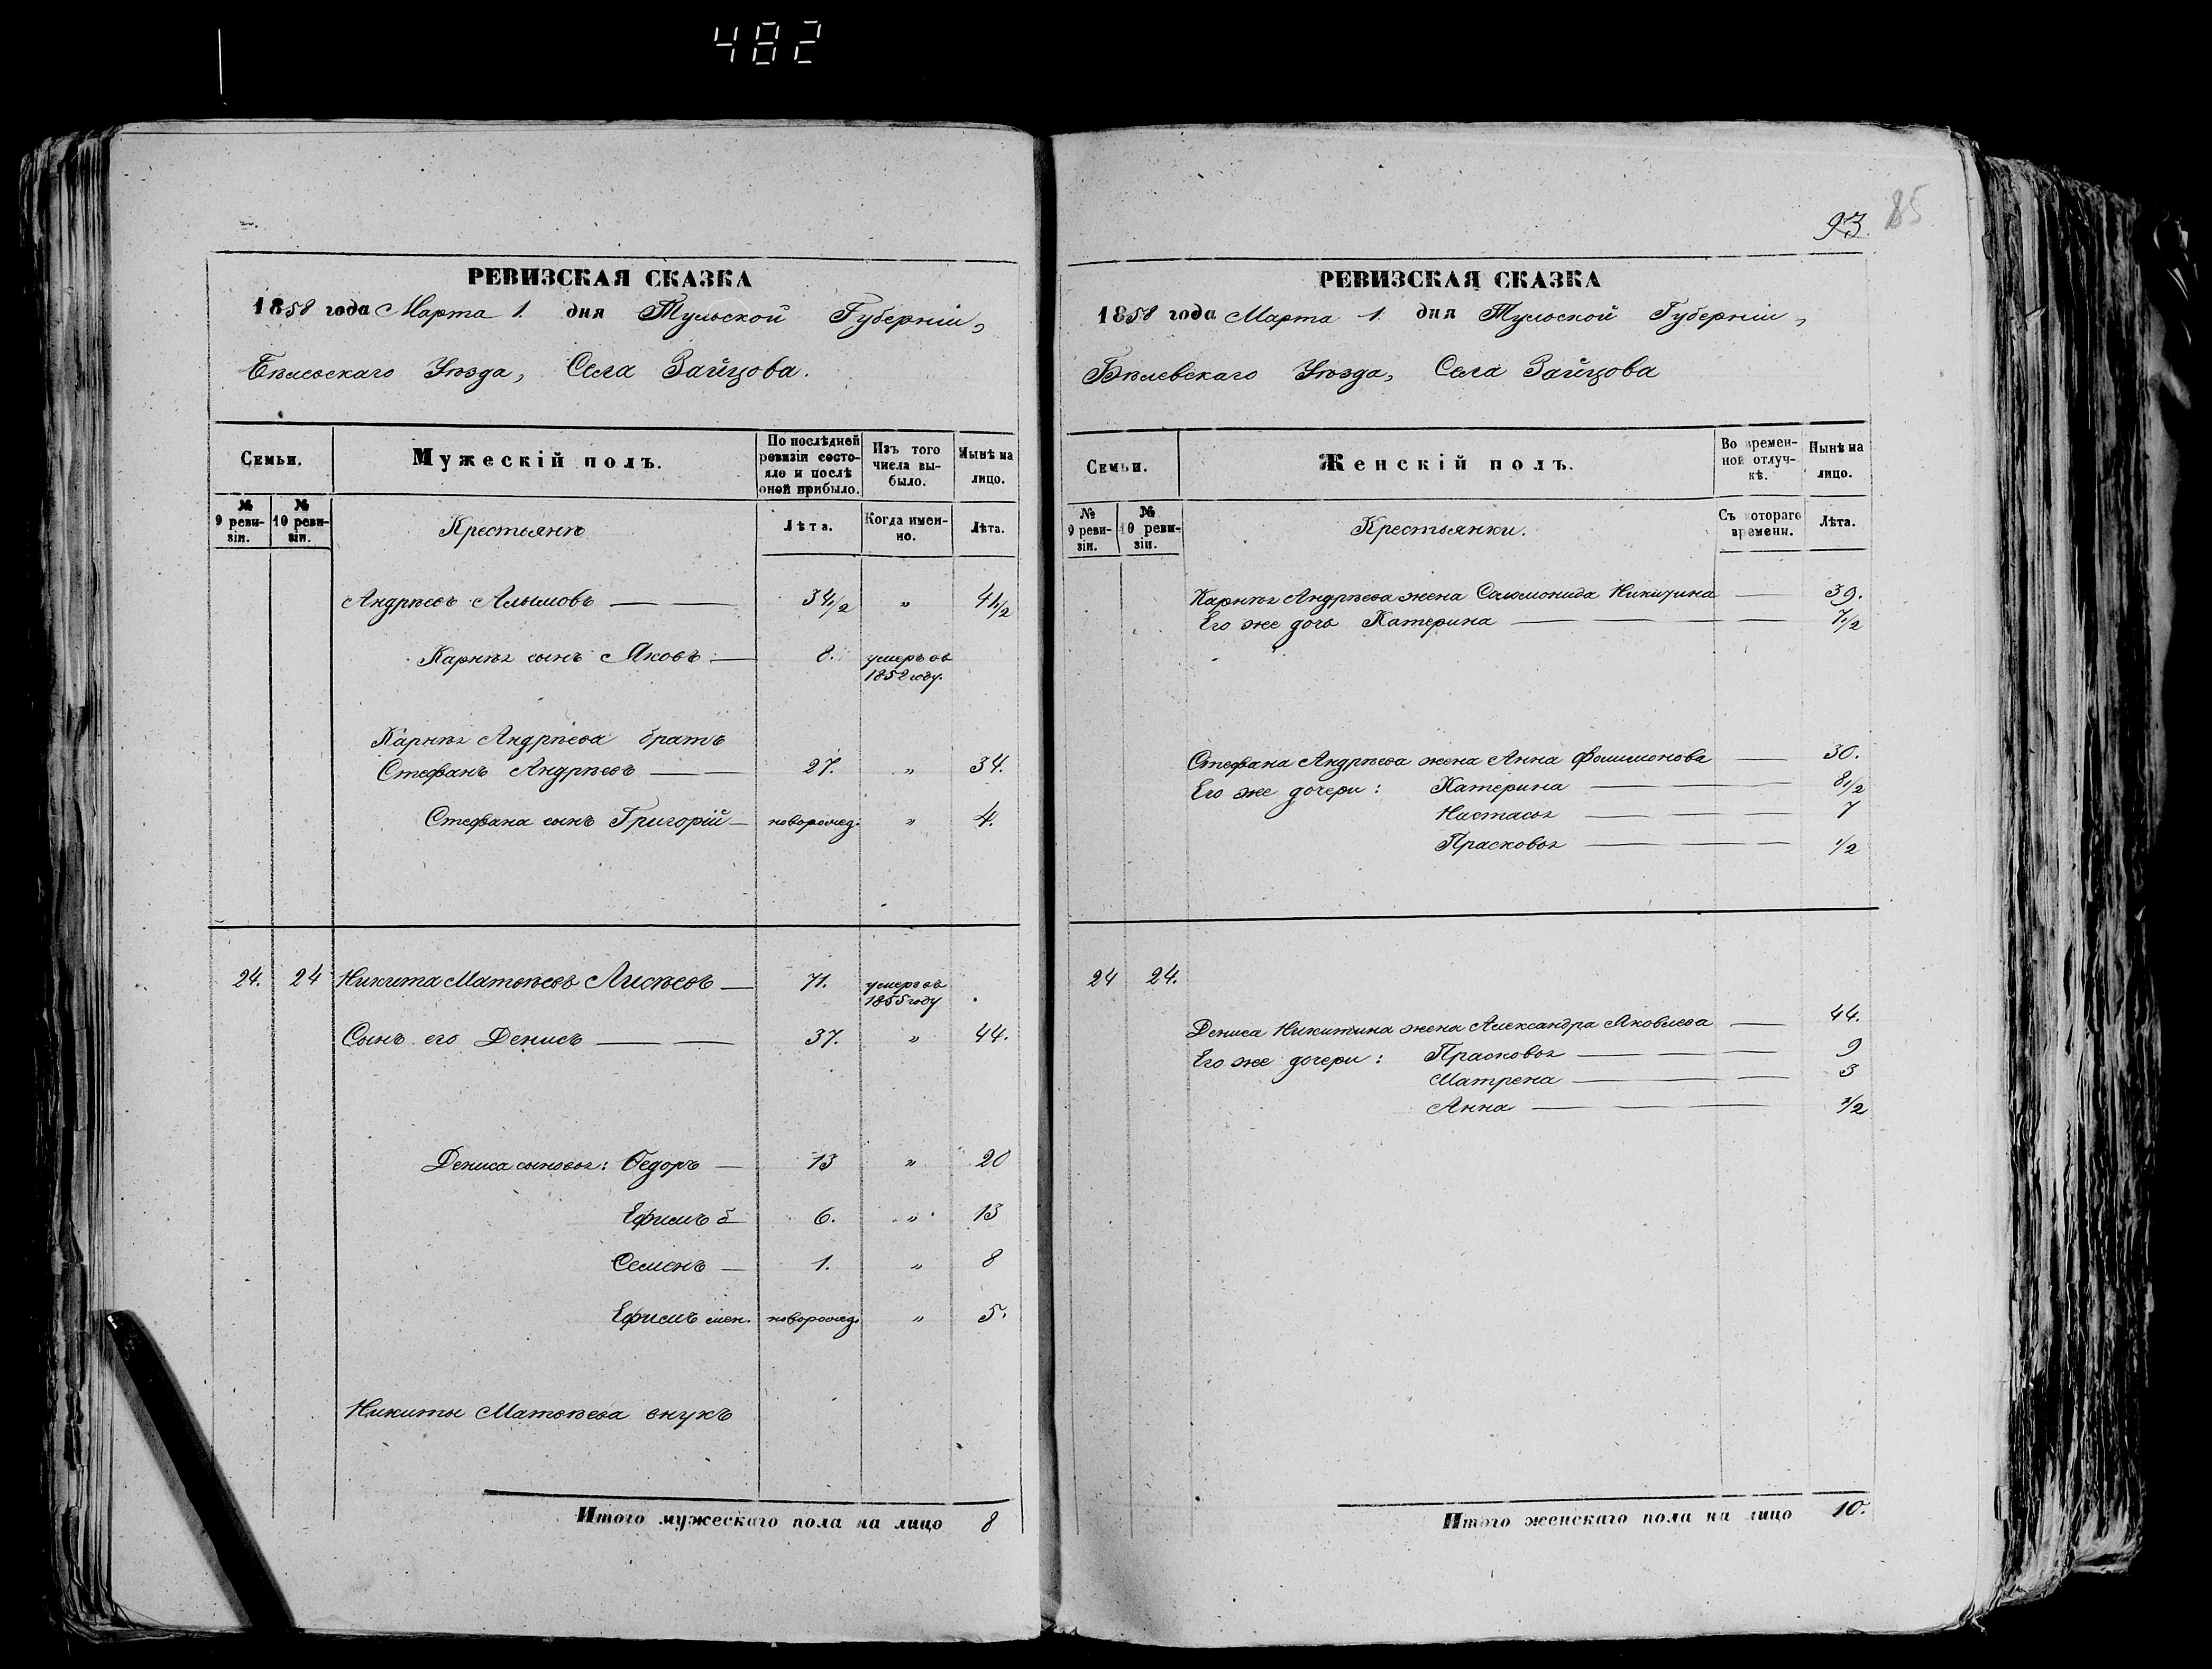 482
93.
85
РЕВИЗСКАЯ СКАЗКА
1858 года Марта 1. дня Тульской Губерніи,
Бѣлевскаго Уѣзда, Села Зайцова.
Семьи.
Мужескій полъ.
По послѣдней ревизіи состояло и послѣ оной прибыло.
Изъ того числа выбыло.
Нынѣ на лицо.
№ 9 ревизіи.
№ 10 ревизіи.
Крестьянѣ
Лѣта.
Когда именно.
Лѣта.
Андрѣевъ Алымовъ — — 34 1/2 " 41 1/2
Карнѣя сынъ Яковъ — 8. умеръ въ 1852 году.
Карнѣя Андрѣева братъ
Стефанъ Андрѣевъ — — 27. " 34.
Стефана сынъ Григорій — новорожд. " 4.
24. 24 Никита Матвѣевъ Лисѣевъ — 71. умеръ въ 1855 году
Сынъ его Денисъ — — 37. " 44.
Дениса сыновья: Ѳедоръ — 13 " 20
Ефимъ б — 6. " 13
Семенъ — 1. " 8
Ефимъ мен. новорожд. " 5.
Никиты Матвѣева внукъ
Итого мужескаго пола на лицо 8
РЕВИЗСКАЯ СКАЗКА
1858 года Марта 1. дня Тульской Губерніи,
Бѣлевскаго Уѣзда, Села Зайцова
Семьи.
Женскій полъ.
Во временной отлучкѣ.
Нынѣ на лицо.
№ 9 ревизіи.
№ 10 ревизіи.
Крестьянки.
Съ котораго времени.
Лѣта.
Карнѣя Андрѣева жена Саломонида Никитина — 39.
Его же дочь Катерина — — — 7 1/2
Стефана Андрѣева жена Анна Филимонова — 30.
Его же дочери: Катерина — — — 8 1/2
Настасья — — — 7
Прасковья — — — 1/2
24 24.
Дениса Никитина жена Александра Яковлева — 44.
Его же дочери: Прасковья — — — 9
Матрена — — — 3
Анна — — — 1/2
Итого женскаго пола на лицо 10.